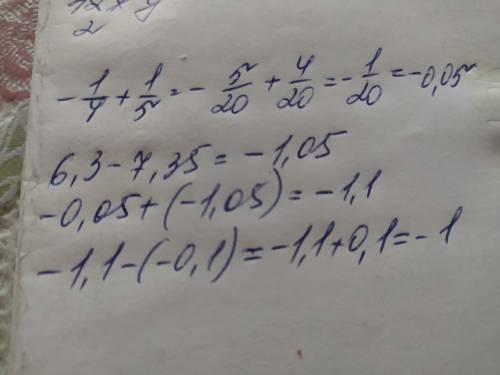 2
-1/4+1/5=-5/20+4/20=-1/20=-0,05
6,3-7,35=-1,05
-0,05+(-1,05)=-1,1
-1,1-(-0,1)=-1,1+0,1=-1